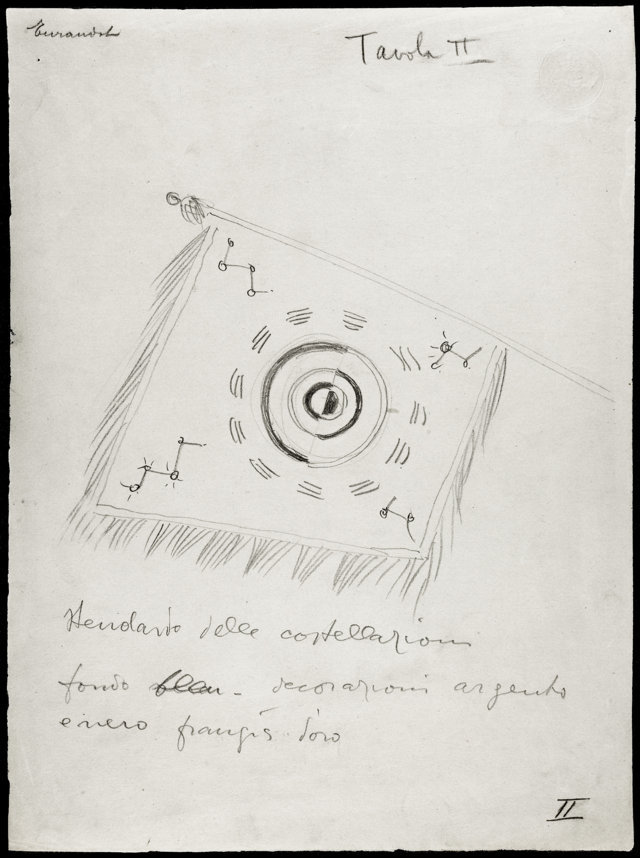 Turandot
Tavola II
Stendardo delle costellazioni
fondo bleu - decorazioni argento
e nero frangia d'oro
II